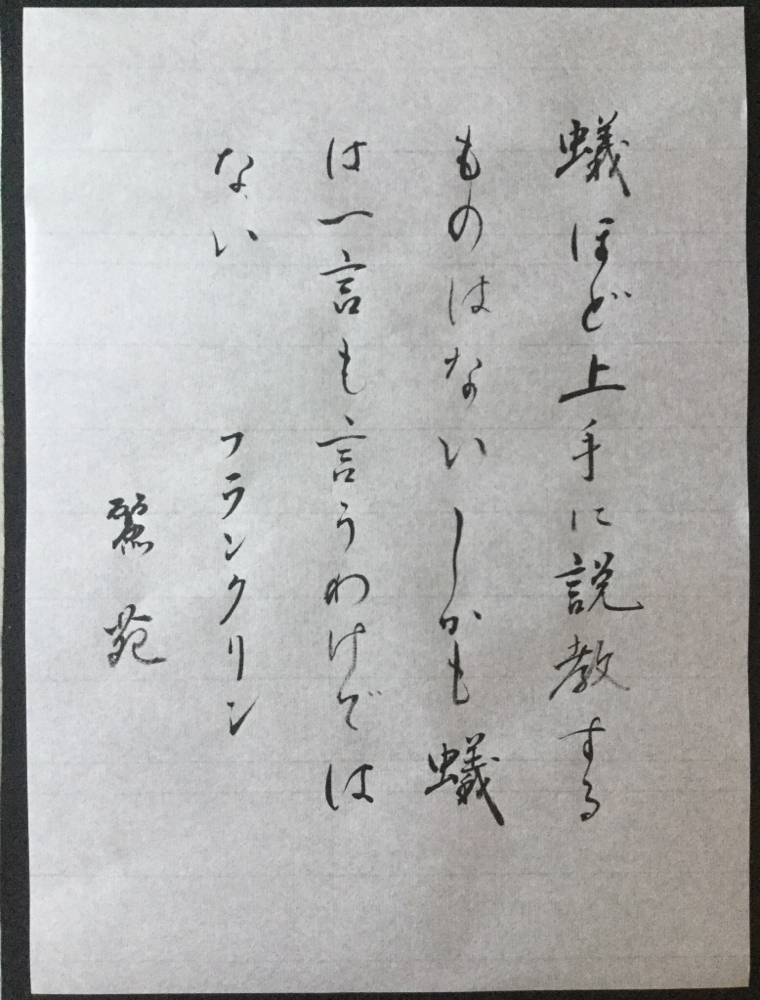 蟻ほど上手に説教する
ものはないしかも蟻
は一言も言うわけでは
ない　フランクリン
苑